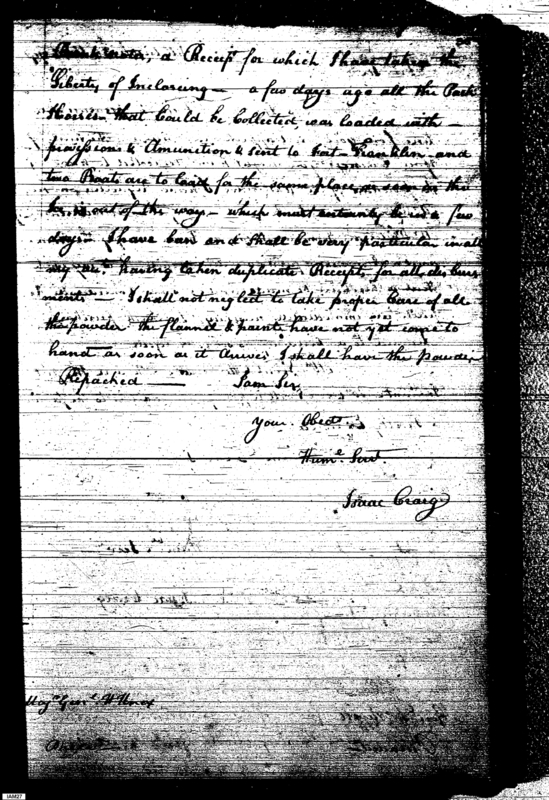 Bank notes, a Receipt for which I have taken the
Liberty of Inclosing — a few days ago all the Pack
Horses that Could be Collected, was loaded with —
provissions & Amunition & sent to Fort Franklin and
two Boats are to load for the same place, as soon as the
Ice is out of the way — which must certainly be in a few
days — I have been and shall be very particular in all
my Acts. having taken duplicate Receipts for all disburs
ments — I shall not neglect to take proper Care of all
the powder the flannel & paints have not yet come to
hand as soon as it Arives I shall have the powder
Repacked — I am Sir,
Your Obedt.
Hume. Servt.
Isaac Craig
Majr. Genl. H Knox
IAM27